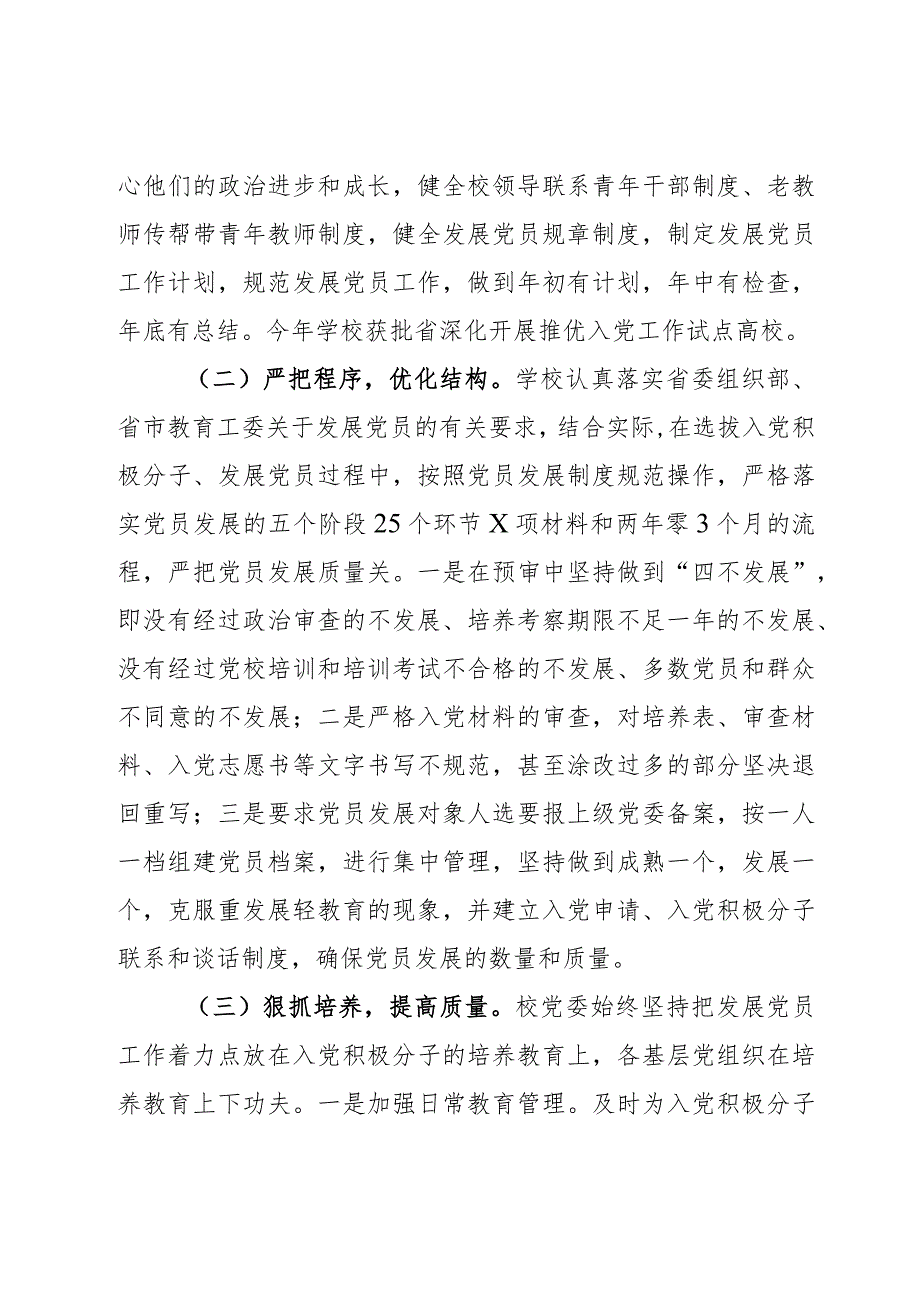 心他们的政治进步和成长，健全校领导联系青年干部制度、老教
师传帮带青年教师制度，健全发展党员规章制度，制定发展党员
工作计划，规范发展党员工作，做到年初有计划，年中有检查，
年底有总结。今年学校获批省深化开展推优入党工作试点高校。
（二）严把程序，优化结构。学校认真落实省委组织部、
省市教育工委关于发展党员的有关要求，结合实际,在选拔入党积
极分子、发展党员过程中，按照党员发展制度规范操作，严格落
实党员发展的五个阶段 25 个环节 X 项材料和两年零 3 个月的流
程，严把党员发展质量关。一是在预审中坚持做到“四不发展”，
即没有经过政治审查的不发展、培养考察期限不足一年的不发展、
没有经过党校培训和培训考试不合格的不发展、多数党员和群众
不同意的不发展；二是严格入党材料的审查，对培养表、审查材
料、入党志愿书等文字书写不规范，甚至涂改过多的部分坚决退
回重写；三是要求党员发展对象人选要报上级党委备案，按一人
一档组建党员档案，进行集中管理，坚持做到成熟一个，发展一
个，克服重发展轻教育的现象，并建立入党申请、入党积极分子
联系和谈话制度，确保党员发展的数量和质量。
（三）狠抓培养，提高质量。校党委始终坚持把发展党员
工作着力点放在入党积极分子的培养教育上，各基层党组织在培
养教育上下功夫。一是加强日常教育管理。及时为入党积极分子